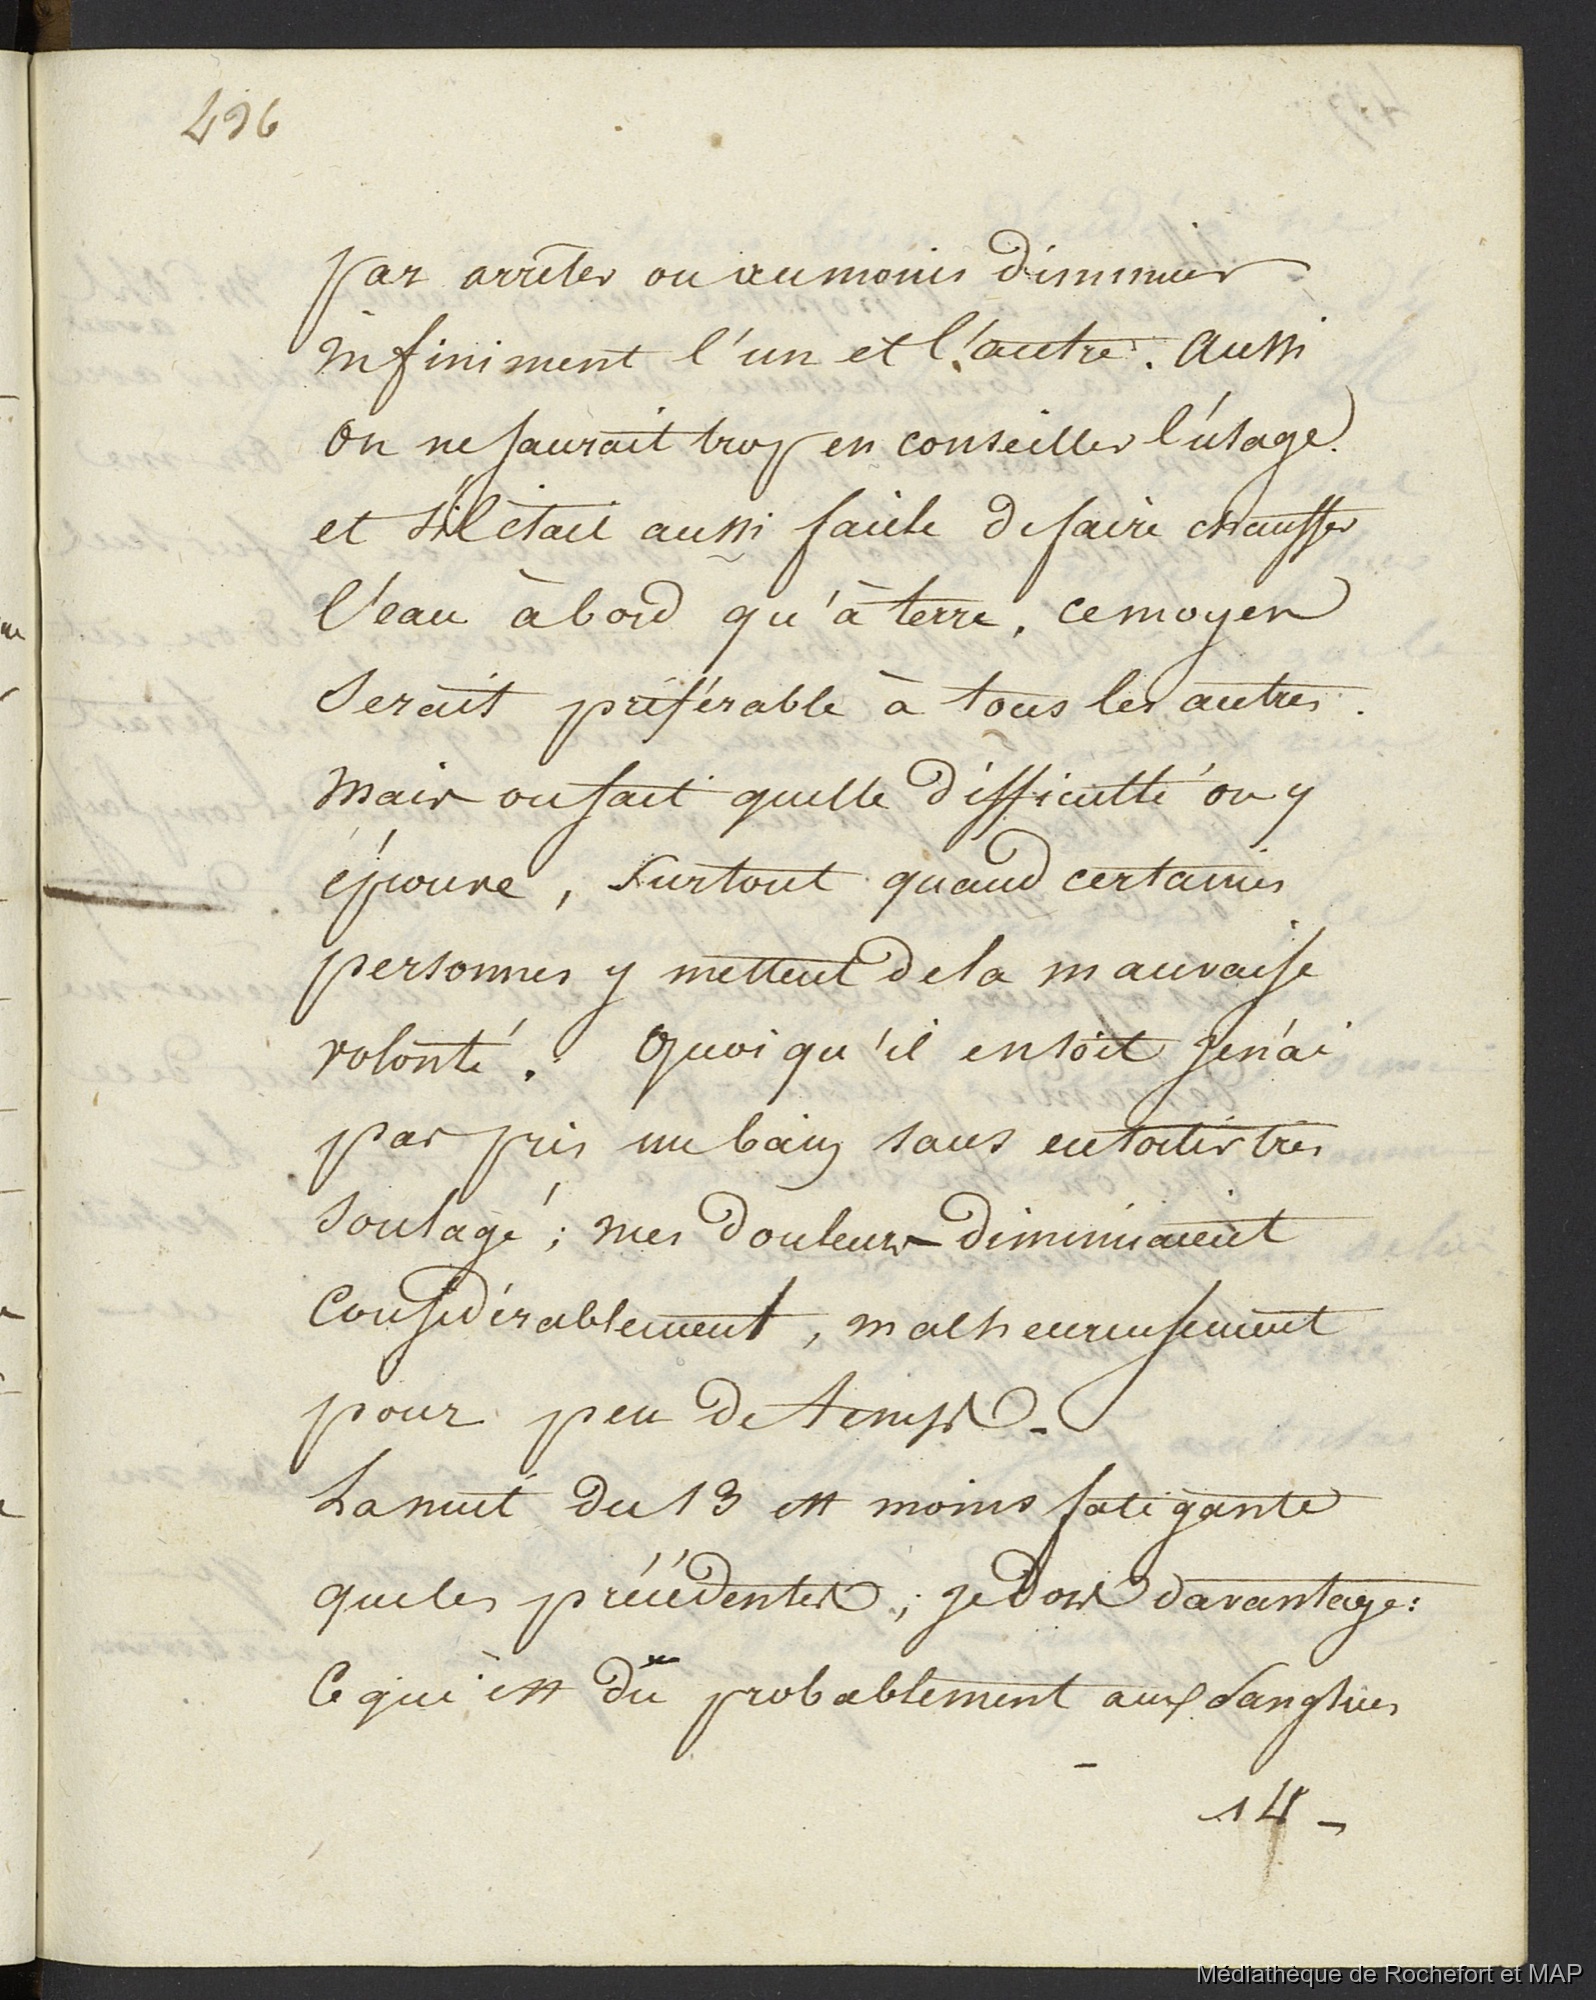 496
par arrêter ou au moins diminuer
infiniment l'un et l'autre. Aussi
on ne saurait trop en conseiller l'usage.
et s'il était aussi facile de faire chauffer
l'eau à bord qu'à terre, ce moyen
serait préférable à tous les autres.
mais on sait quelle difficulté on y
éprouve, surtout quand certaines
personnes y mettent de la mauvaise
volonté. Quoi qu'il en soit je n'ai
pas pris un bain sans en sortir très
soulagé; mes douleurs diminuaient
considérablement, malheureusement
pour peu de temps.
La nuit du 13 est moins fatigante
que les précédentes; je dors davantage:
Ce qui est dû probablement aux sangsues
14 -
Médiathèque de Rochefort et MAP